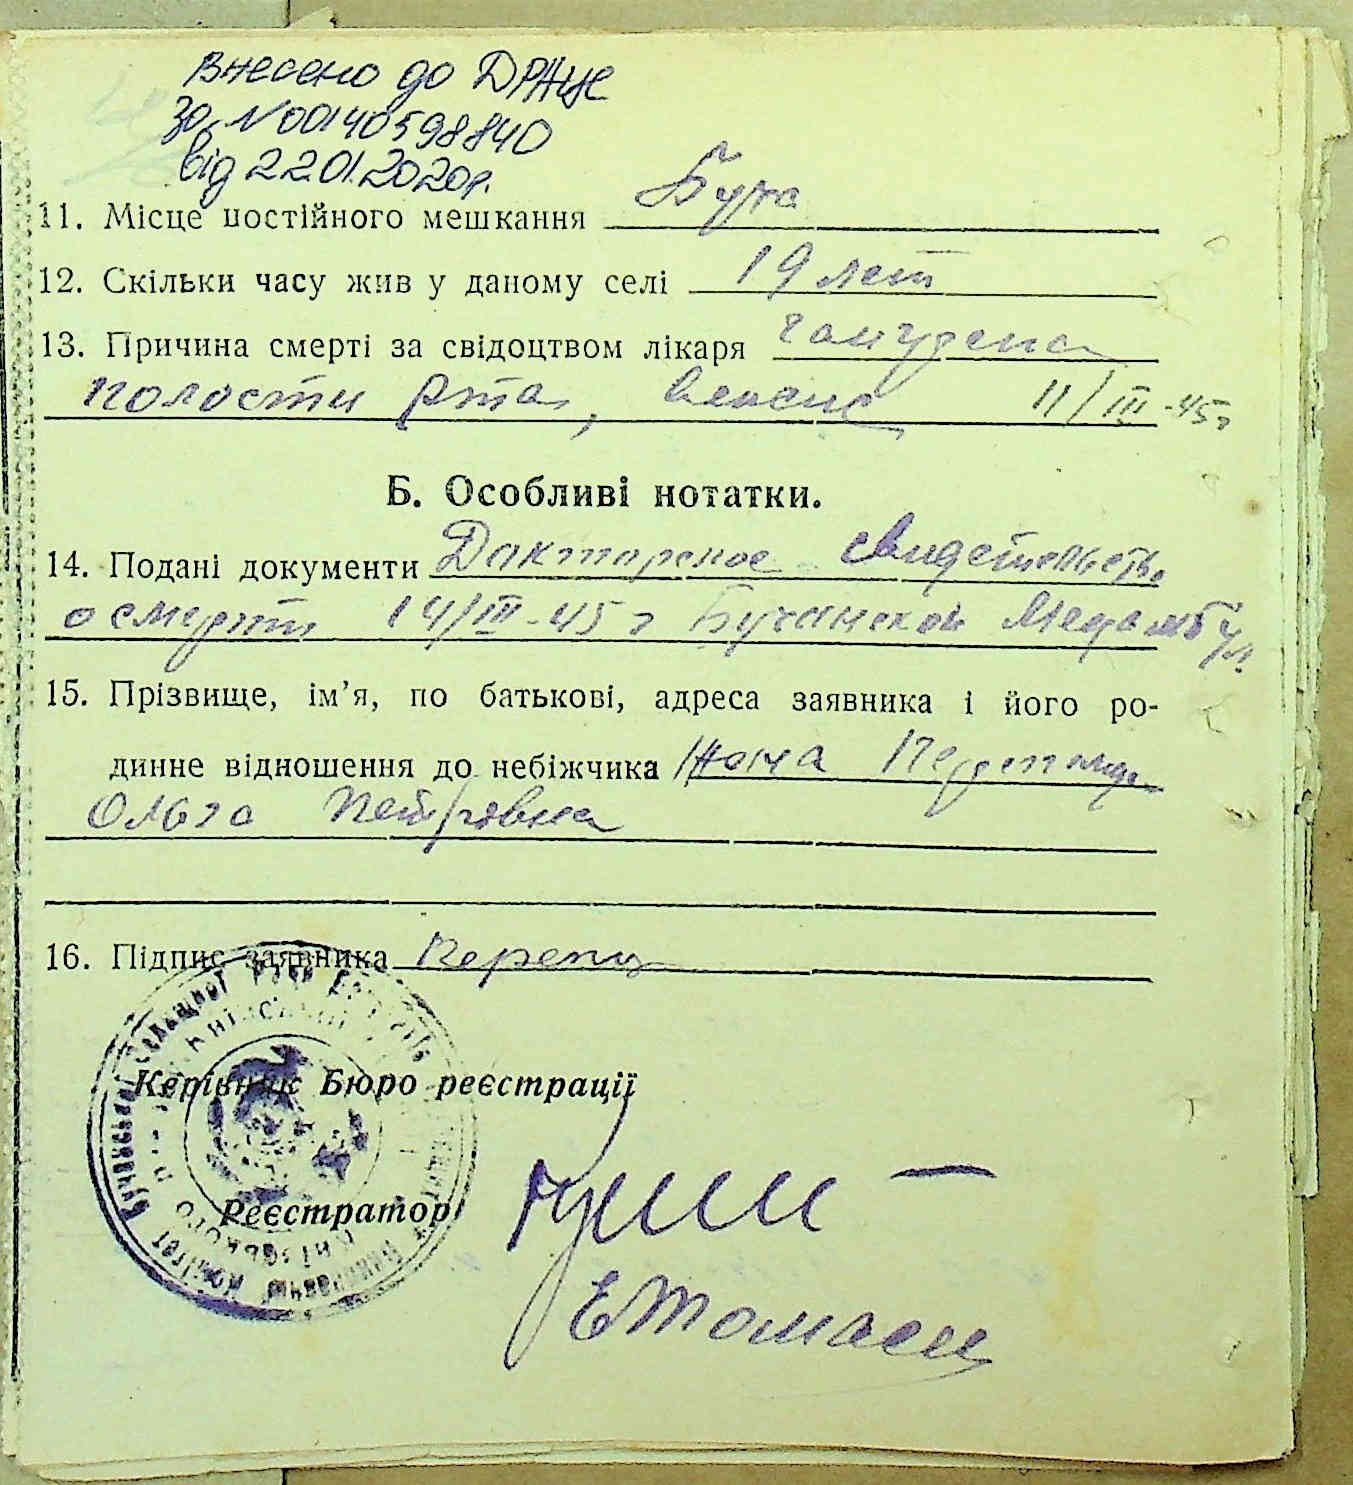 Внесено до ДРАЦС
за №00140598840
від 22.01.2020р.
11. Місце постійного мешкання Буча
12. Скільки часу жив у даному селі 19 лет
13. Причина смерті за свідоцтвом лікаря
полости рта, 11/III-45г
Б. Особливі нотатки.
14. Подані документи Докторское свидетельство
о смерти 14/III-45 г Бучанской Медамбул.
15. Прізвище, ім'я, по батькові, адреса заявника і його ро-
динне відношення до небіжчика Жена
Ольга Петровна
16. Підпис заявника
Керівник Бюро реєстрації
Реєстратор